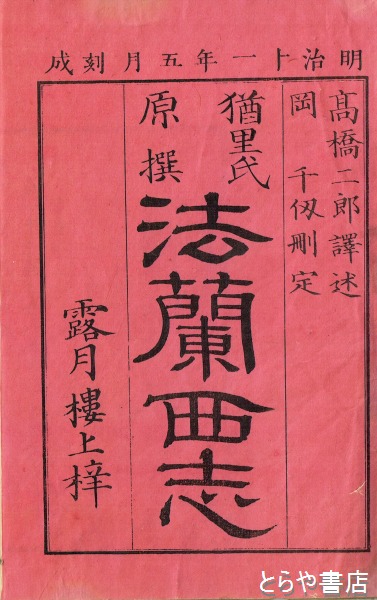 明治十一年五月刻成
髙橋二郎譯述
岡千仭刪定
猶里氏
原撰
法蘭西志
露月樓上梓
とらや書店